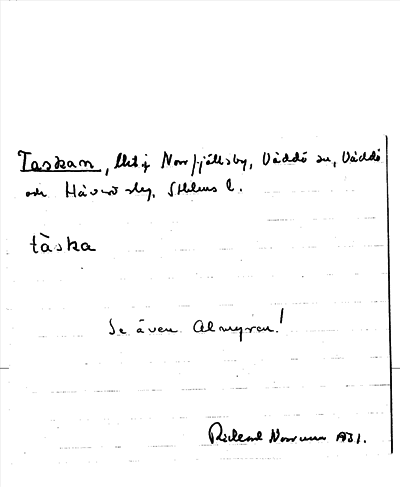 Taskan, lht i Norrfjällsby, Väddö sn, Väddö
och Häverö skg, Sthlms l.
tàska
Se även Almyren!
Rickard Norrman 1931.